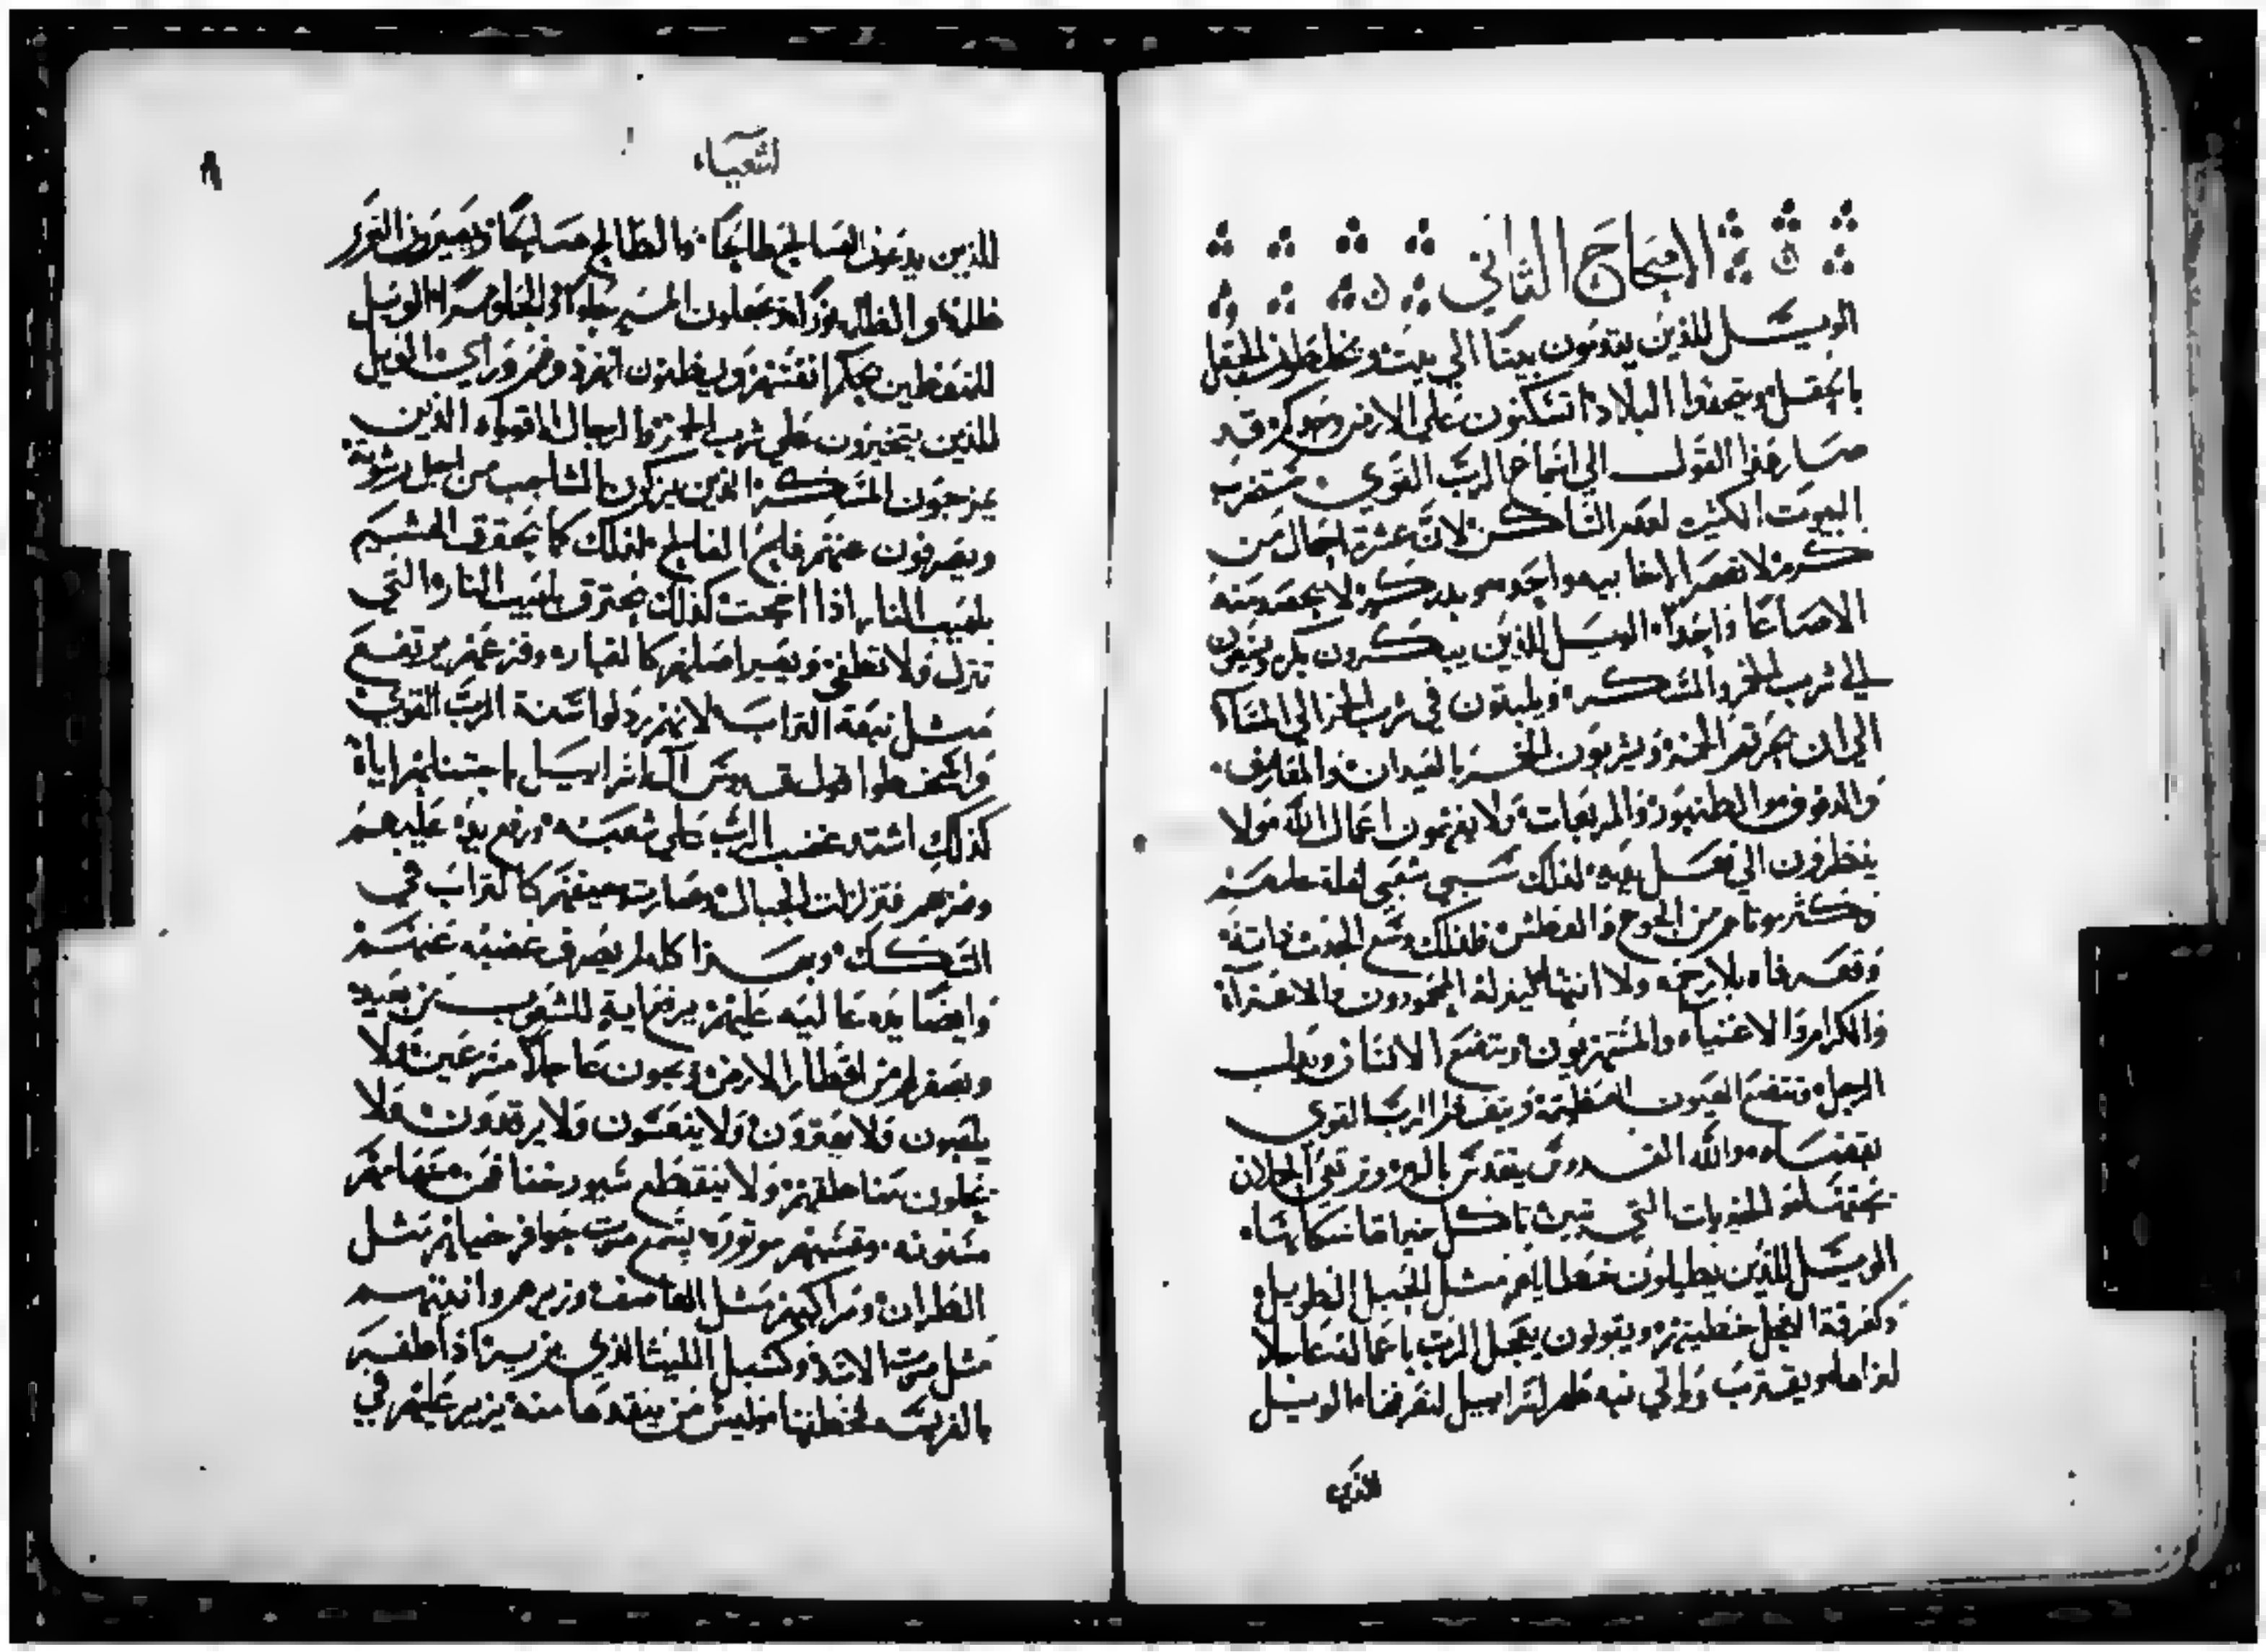 الاصحاح الثاني
الويـــل للذين يقدمون بيتا الي بيت ويخلطون الحقل
بالحقل ويتجمعوا البلاد اتسكنون علي الارض وحدكم قد
صار هذا القول الي اسماع الرب القوي ستخرب
البيوت الكثيرة لعدم الساكن لان عشرة اجمال من
كرم لا تعصر الا خابيه واحده وبدر كر لا يحصد منه
الا صاعا واحدا الويـــل للذين يبكرون بكره ويمضون
الي شرب الخمر والمسكر ويلبثون في شرب الخمر الي المساء
الي ان يحرقهم الخمر ويشربون الخمر بالعيدان والمعازف
والدفوف والطنبور والمربعات ولا يفهمون اعمال الله ولا
ينظرون الي فعـــل يديه لذلك سبي شعبي لقلة علمهم
وكثر موتاهم من الجوع والعطش فلذلك وسع الجحيم ذاته
وفغر فاه بلا رحمه ولا انتها لينزله الممجدون والاعزآ
والكرام والاغنياء والمستهزيون ويتضع الانسان ويذل
الرجل وتتضع العيون العظيمة ويتعظم الرب القوي
بقضاه والله القدوس يتقدس بالبر وترتعي الحملان
الخربات التي تبنت تاكل خيراتها سكانها
الويـــل للذين يطيلون خطاياهم مثل الحبل الطويل
وكعرقة العجل خطيتهم ويقولون يعجل الرب باعماله عاجلا
لنراها ويقترب وياتي نبيه طهر اسراييل لنعرفها الويـــل
للذين
اشعياء
٨
للذين يدعون الصالح طالحا والطالح صالحا ويصيرون النور
ظلمة والظلمة نورا ويجعلون المر حلوا والحلو مرا الويل
للذين حكما انفسهم ويظنون انهم ذو فهم وراي الويل
للذين يتجبرون علي شرب الخمر والرجال الاقوياء الذين
يمزجون المسكر الذين يزكون المنافق من اجل رشوته
ويصرفون عنهم فلج الفالح لذلك كما يحترق الهشيم
بلهيب النار اذا احميت كذلك يحترق بلهيب النار التي
تنزل ولا تطفي ويصير اصلهم كالغبار وفرعهم يرتفع
مثـــل نبعة التراب لانهم رذلوا سنة الرب القوي
واسخطوا قول قدوس آل اسراييل باجتنابهم اياه
كذلك اشتد غضب الرب علي شعبه ورفع يده عليهم
وضربهم فتزلزلت الجبال وصارت جيفتهم كالتراب في
السكك وبهـــذا كله لم يصرف غضبه عنهـم
وايضا يده عاليه عليهم يرفع اية للشعوب من بعيد
ويصفر لهم من اقطار الارض ويجون عاجلا مسرعين ولا
يلغبون ولا يعثرون ولا ينعسون ولا يرقدون ولا
يحلون مناطقهم ولا ينقطع سيور خفافهم سهامهم
مسنونه وقسيهم موتوره يسمع صوت حوافر خيلهم مثـــل
الظران ومراكبهم مثـل العاصف وزيرهم وانينهـم
مثل صوت الاسد وكشبل الليث الذي يزير اذا ظفر
بالفريسه لخطفها وليس من ينقدها منه يزير عليهم في